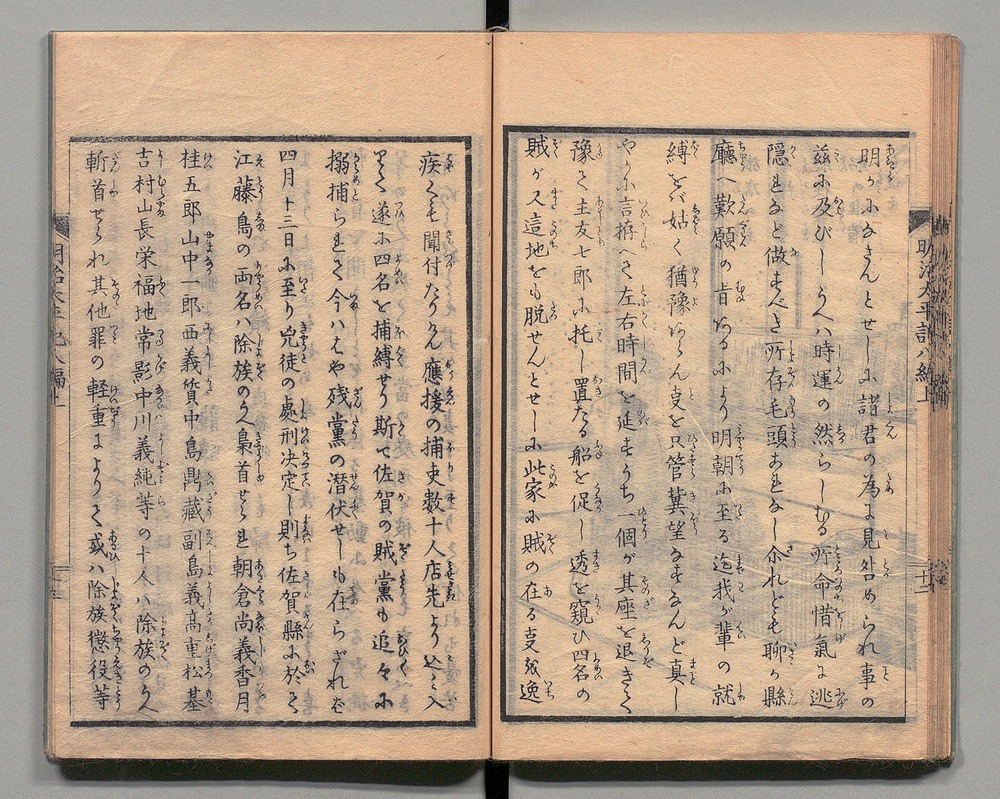 明かになさんとせしに諸君の為に見咎められ事の
茲に及びしうへハ時運の然らしむる所命惜氣に迯
隠れなど做すべき所存毛頭あれなし尒れども聊か縣
廳へ歎願の旨あるにより明朝に至る迄我が輩の就
縛をバ姑く猶豫あらん事を只管冀望なすなんど真し
やかに言拵へて左右時間を延すうち一個が其座を退きて
豫て主友七郎に托し置たる船を促し透を窺ひ四名の
賊が又這地をも脱せんとせしに此家に賊の在る事をバ逸
疾くも聞付たりけん應援の捕吏数十人店先より込と入
来て遂に四名を捕縛せり斯て佐賀の賊黨も追々に
搦捕られて今ハはや残黨の潜伏せしも在らざれバ
四月十三日に至り兇徒の處刑决定し則ち佐賀縣に於て
江藤島の両名ハ除族のうへ梟首せられ朝倉尚義香月
桂五郎山中一郎西義質中島鼎藏副島義高重松基
吉村山長栄福地常影中川義純等の十人ハ除族のうへ
斬首せられ其他罪の軽重によりて或ハ除族懲役等
明治太平記八編上
十二
明治太平記八編上